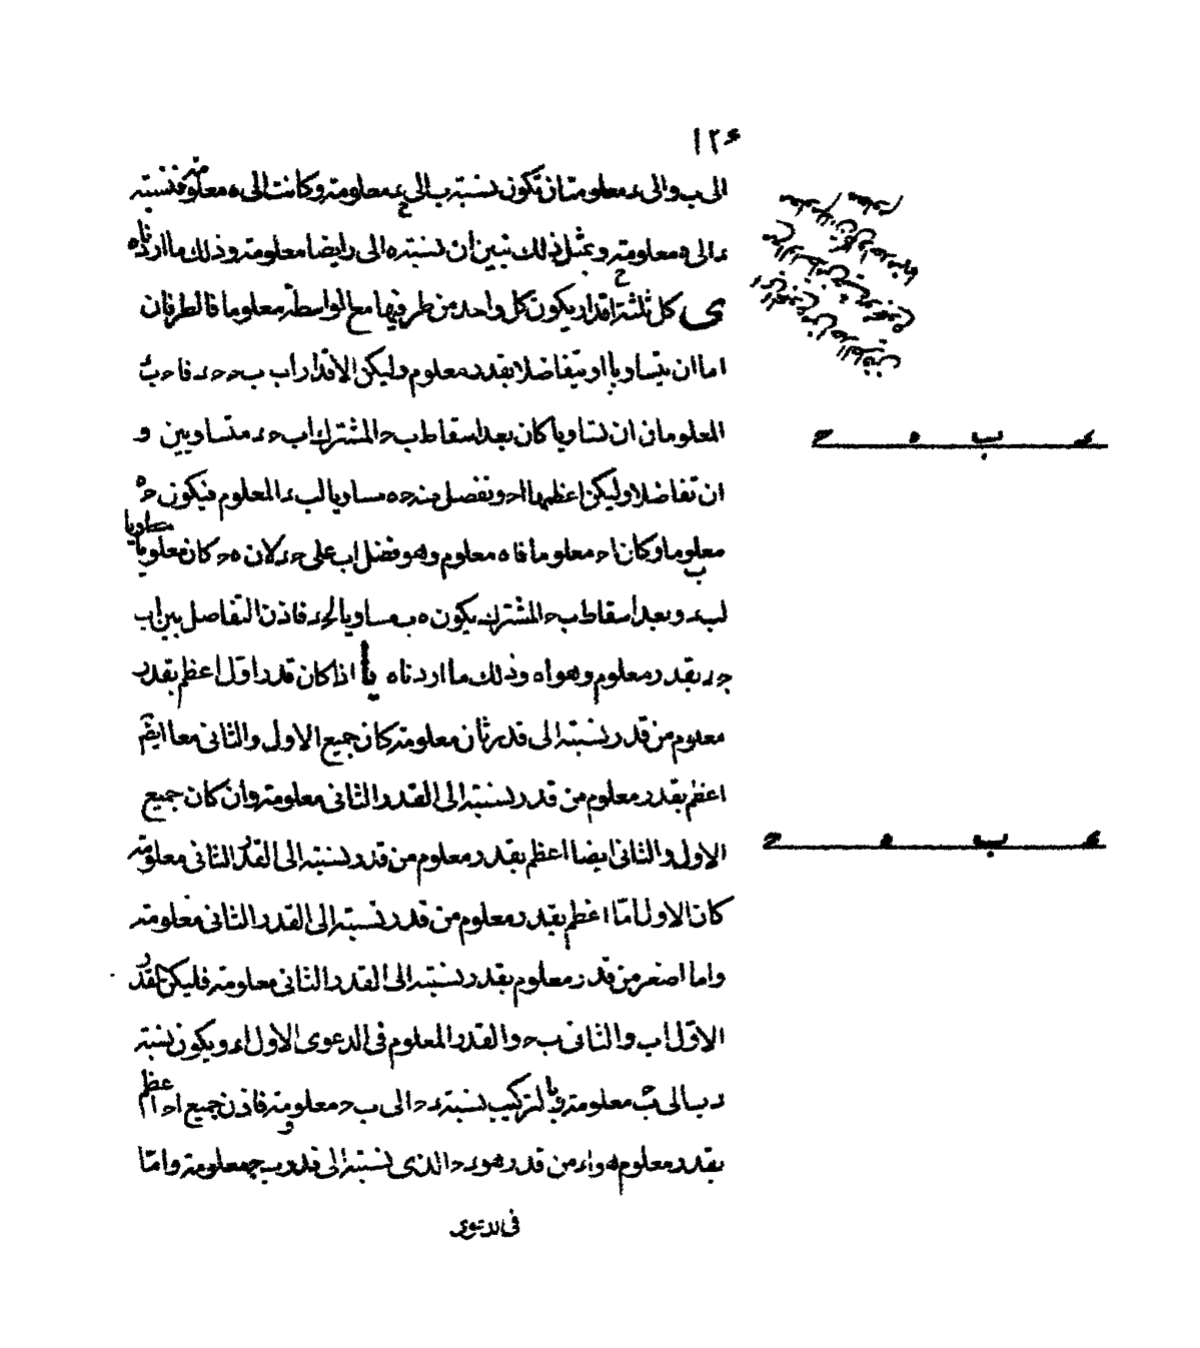 ١٢۶
الى ب والى ء معلومتان تكون نسبة ب الى ء معلومة وكانت الى ه معلومة فنسبة
ء الى ه معلومة وبمثل ذلك نبين ان نسبته ه الى ر ايضا معلومة وذلك ما اردناه
ى كل ثلثة اقدار يكون كل واحد من طرفيها مع الواسطة معلوما فالطرفان
اما ان يتساويا او يتفاضلا بقدر معلوم وليكن الاقدار اب ب ح ح ء فا ح ب ء
المعلومان ان تساويا كان بعد اسقاط ب ح المشترك اب ح ء متساويين و
ان تفاضلا وليكن اعظمهما ا ح ونفصل منه ح ه مساويا لب ء المعلوم فيكون ح ه
معلوما وكان ا ح معلوما فا ه معلوم وهو فضل اب على ح ء لان ه ح كان مساويا
لب ء وبعد اسقاط ب ح المشترك يكون ه ب مساويا لح ء فاذن التفاضل بين اب
ح ء بقدر معلوم وهو اه وذلك ما اردناه يا اذا كان قدر اول اعظم بقدر
معلوم من قدر نسبته الى قدر ثان معلومة كان جميع الاول والثانى معا ايضا
اعظم بقدر معلوم من قدر نسبته الى القدر الثانى معلومة وان كان جميع
الاول والثانى ايضا اعظم بقدر معلوم من قدر نسبته الى القدر الثانى معلومة
كان الاول اما اعظم بقدر معلوم من قدر نسبته الى القدر الثانى معلومة
واما اصغر من قدر معلوم بقدر نسبته الى القدر الثانى معلومة فليكن القدر
الاول اب والثانى ب ح والقدر المعلوم فى الدعوى الاول اء ويكون نسبة
ء ب الى ب ح معلومة وبالتركيب نسبة ء ح الى ب ح معلومة فاذن جميع ا ح اعظم
بقدر معلوم هو اء من قدر هو ء ح الذى نسبته الى قدر ب ح معلومة واما
فى الدعوى
ح ه ب ء
ح ه ب ء